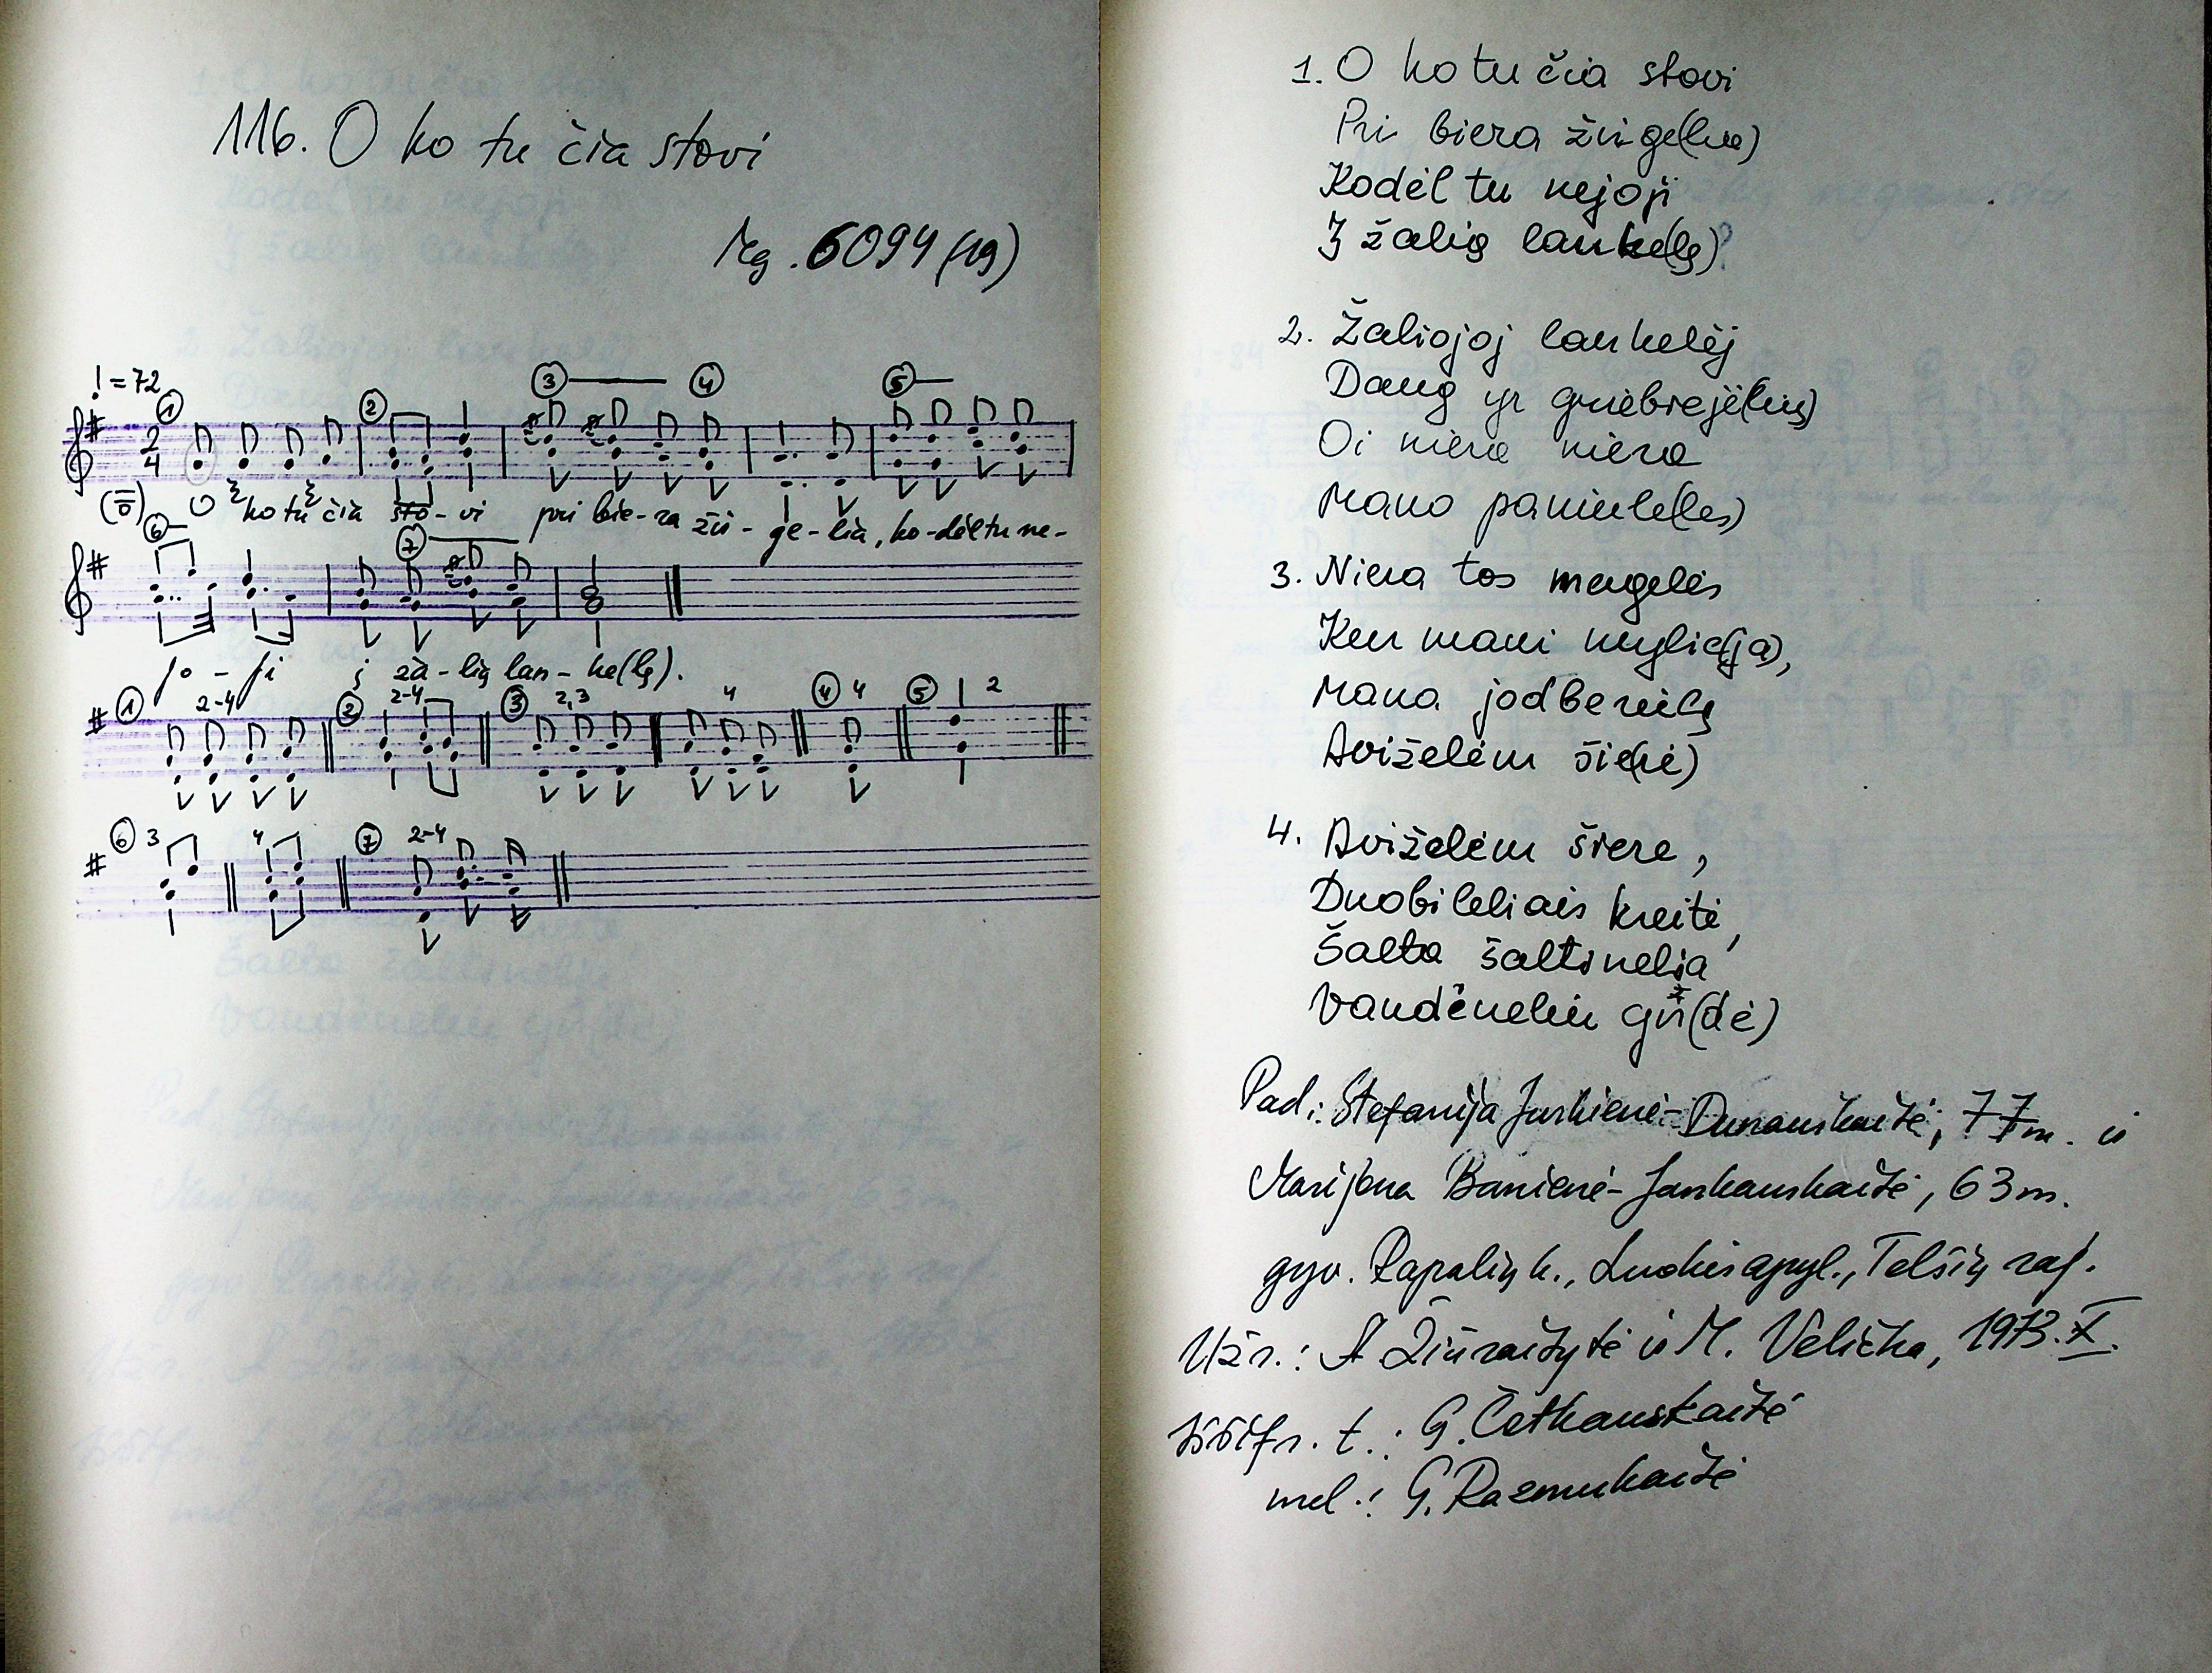 116. O ko tu čia stovi
Mg. 6094 (19)
= 72
① ② ③ ④ ⑤
2
4
O ko tu čia sto - vi pri bie - ra žir - ge - lia, ko - dėl tu ne -
⑥ ⑦
jo - ji į ža - lią lan - ke(lę).
① 2-4 ② 2-4 ③ 2,3 4 ④ 4 ⑤ 2
⑥ 3 4 ⑦ 2-4
1. O ko tu čia stovi
Pri biera žirge(lia)
Kodėl tu nejoji
Į žalią lanke(lę)?
2. Žaliojoj lankelėj
Daug yr griebiejė(lių)
Oi niera niera
Mano paniele(les)
3. Niera tos mergelės
Ken mani mylie(ja),
Mana jodberielį
Aviželėm šie(rė)
4. Aviželėm šiere,
Duobileliais kreitė,
Šalta šaltinelia
Vandėneliu gir(dė)
Pad.: Stefanija Jurkienė- 77m. ir
Marijona Banienė-Jankauskaitė, 63m.
gyv. Rapalių k., Luokės apyl., Telšių raj.
Užr.: A Žiūraitytė ir M. Velička, 1973.X.
Iššifr. t.: G. Četkauskaitė
mel.: G. Razmukaitė